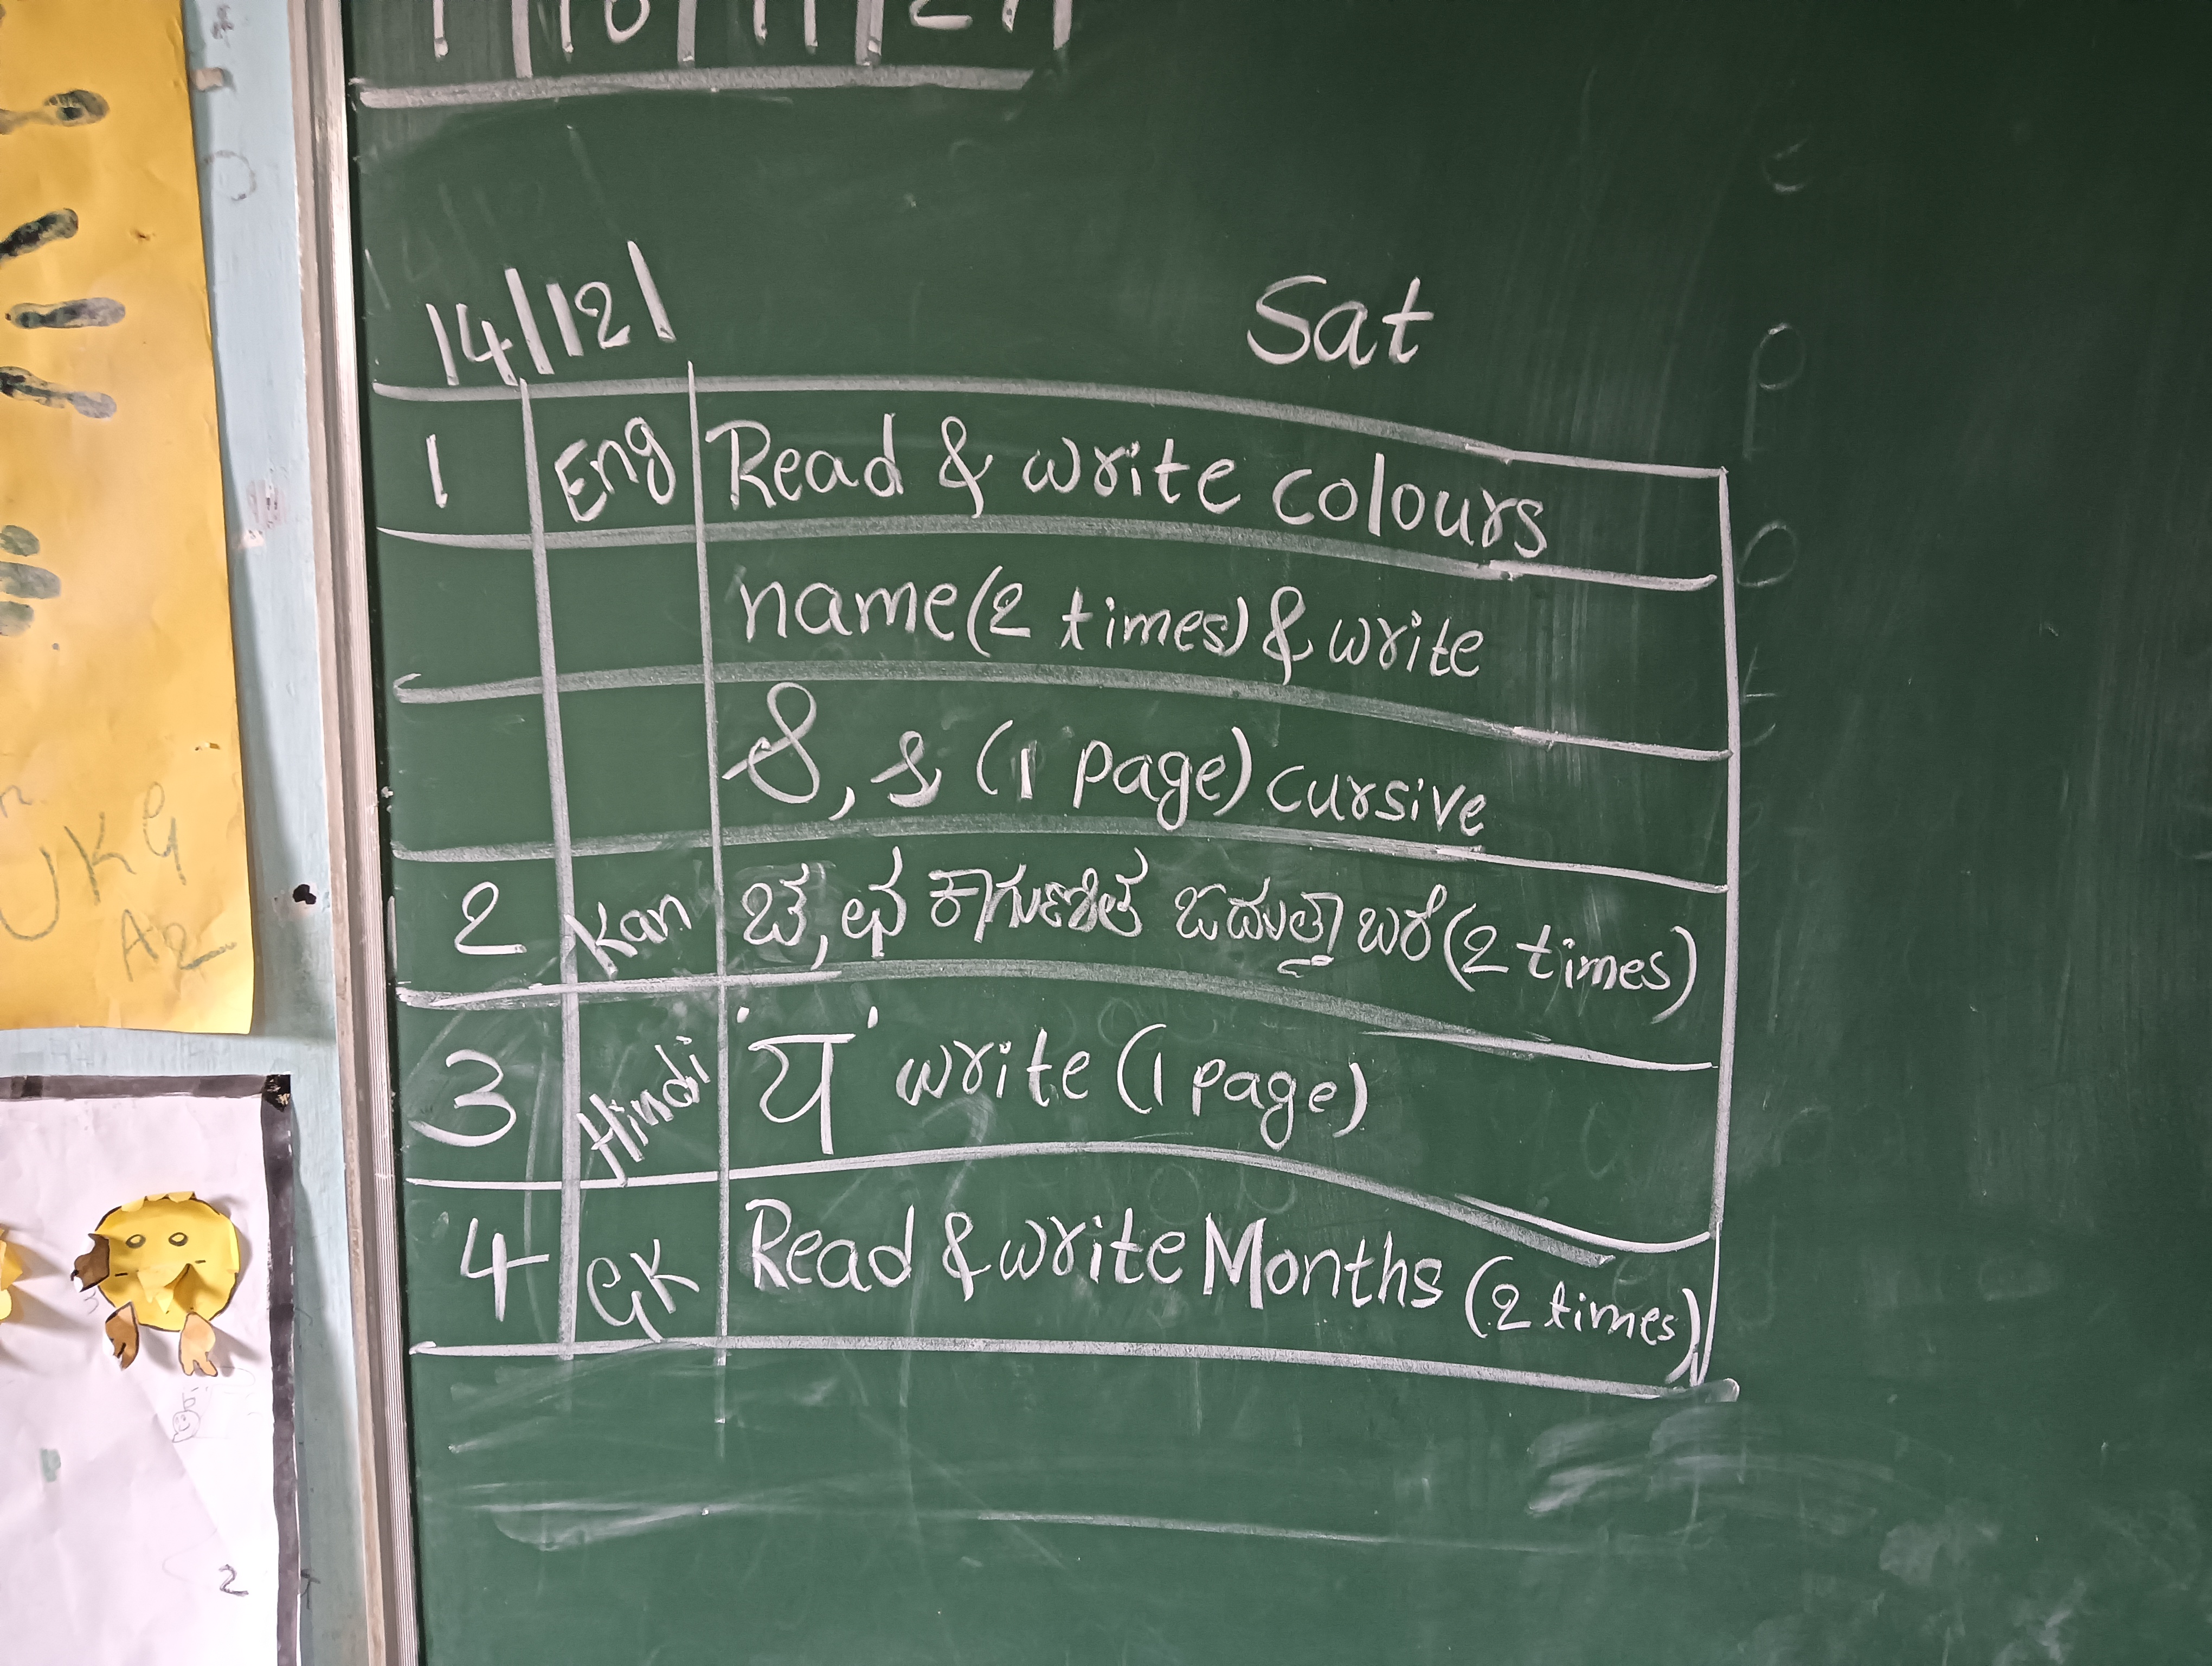 14/12/ Sat
1 Eng Read & write colours
name (2 times) & write
S, s (1 page) cursive
2 Kan ಚ, ಛ ಕಾಗುಣಿತ ಓದುತ್ತಾ ಬರೆ (2 times)
3 Hindi 'य' write (1 page)
4 GK Read & write Months (2 times)
UKG
A2
2